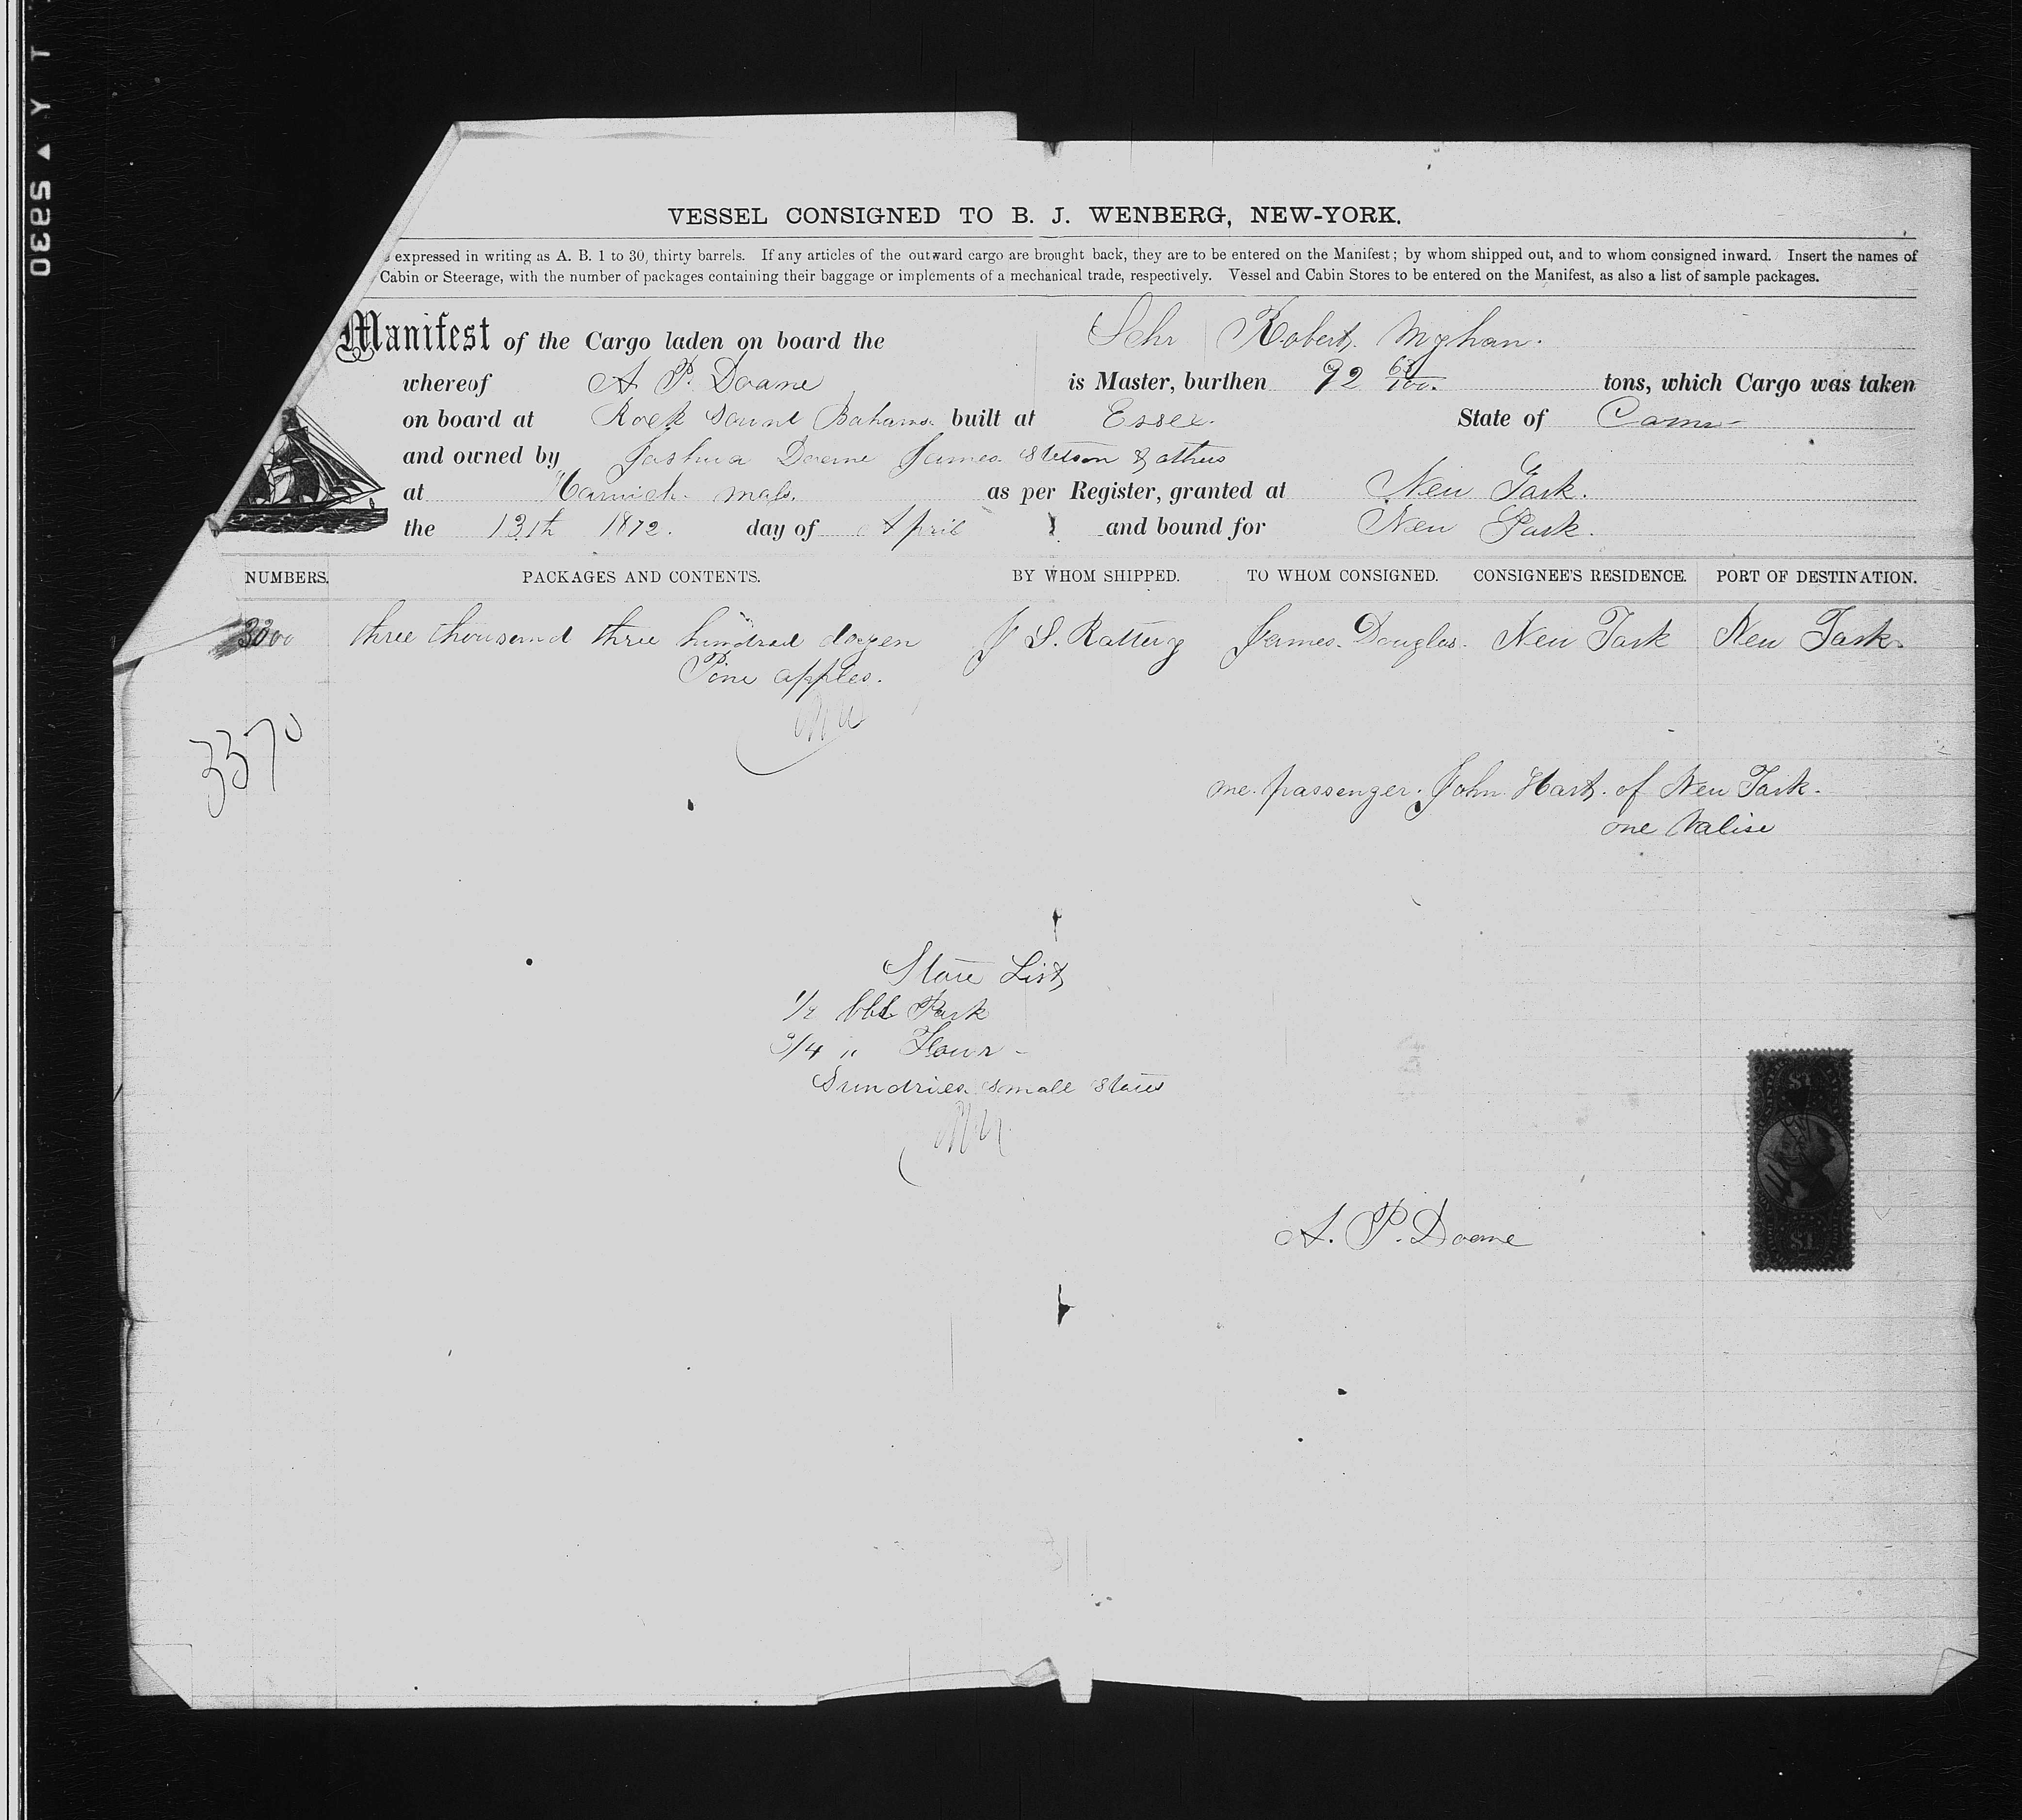 VESSEL CONSIGNED TO B. J. WENBERG, NEW-YORK.
expressed in writing as A. B. 1 to 30, thirty barrels. If any articles of the outward cargo are brought back, they are to be entered on the Manifest; by whom shipped out, and to whom consigned inward. Insert the names of
Cabin or Steerage, with the number of packages containing their baggage or implements of a mechanical trade, respectively. Vessel and Cabin Stores to be entered on the Manifest, as also a list of sample packages.
Manifest of the Cargo laden on board the Schr Robert Myhan.
whereof A. P. Doane is Master, burthen 92 63/100 tons, which Cargo was taken
on board at Rock Sound Bahama built at Essex. State of Conn
and owned by Joshua Doane James Stetson & others
at Harwich. Mass. as per Register, granted at New York.
the 13th 1872. day of April and bound for New York.
NUMBERS. PACKAGES AND CONTENTS. BY WHOM SHIPPED. TO WHOM CONSIGNED. CONSIGNEE'S RESIDENCE. PORT OF DESTINATION.
3300 three thousand three hundred dozen J S. Rattery James Douglas. New York New York
Pine apples.
3370
one passenger. John Hart. of New York.
one Valise
Store List
1/2 bbl Pork
3/4 " Flour -
Sundries small stores
A. P. Doane
$1
$1